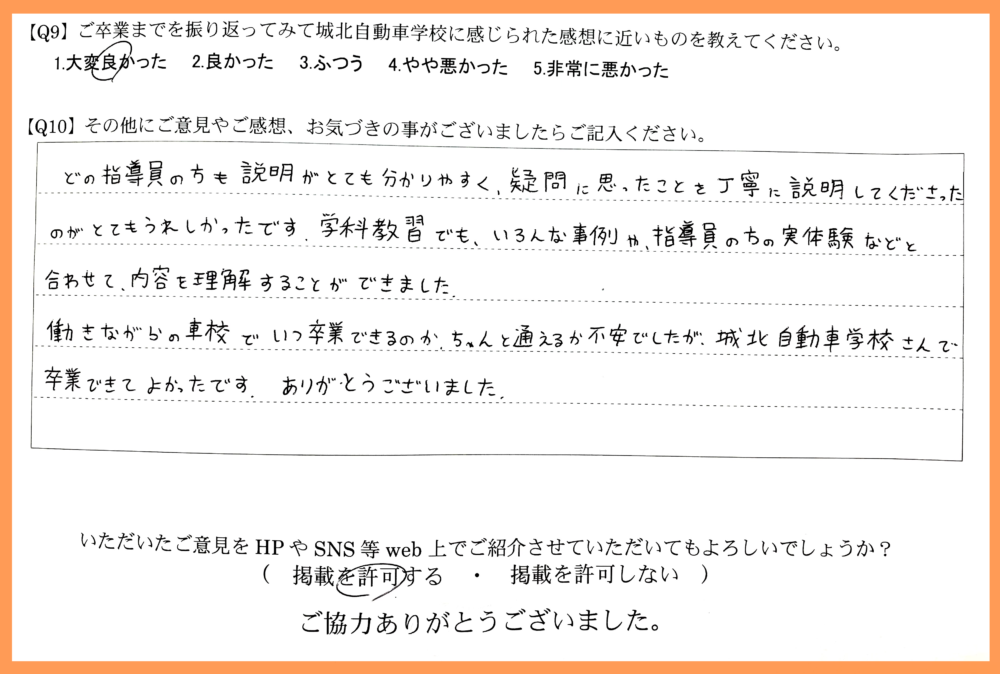 【Q9】ご卒業までを振り返ってみて城北自動車学校に感じられた感想に近いものを教えてください。
1.大変良かった 2.良かった 3.ふつう 4.やや悪かった 5.非常に悪かった
【Q10】その他にご意見やご感想、お気づきの事がございましたらご記入ください。
どの指導員の方も説明がとても分かりやすく、疑問に思ったことを丁寧に説明してくださった
のがとてもうれしかったです。学科教習でも、いろんな事例や、指導員の方の実体験などと
合わせて、内容を理解することができました。
働きながらの車校でいつ卒業できるのか、ちゃんと通えるか不安でしたが、城北自動車学校さんで
卒業できてよかったです。ありがとうございました。
いただいたご意見をHPやSNS等web上でご紹介させていただいてもよろしいでしょうか？
（ 掲載を許可する ・ 掲載を許可しない ）
ご協力ありがとうございました。